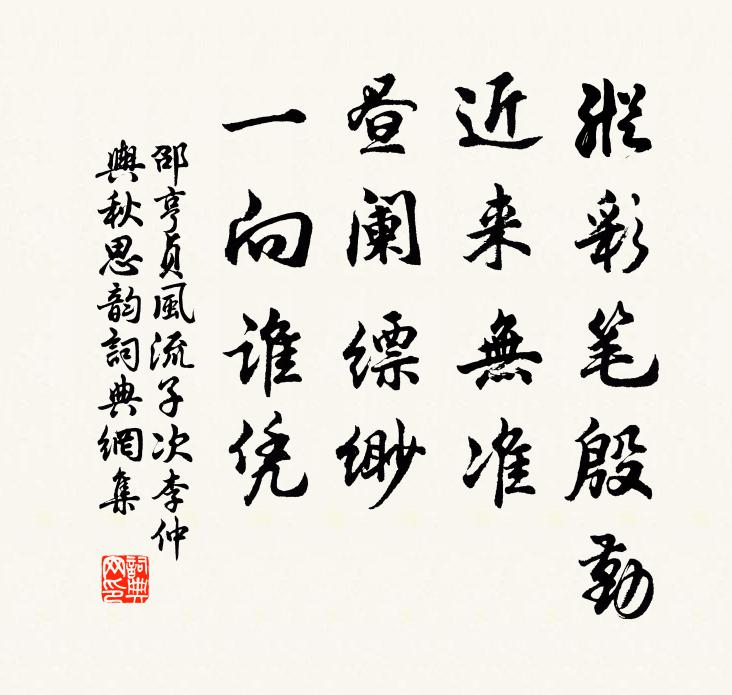 縱彩笔殷勤
近来無准
昼阑缥缈
一向谁凭
邵亨貞風流子次李仲
與秋思韵詞典網集
詞典
网印